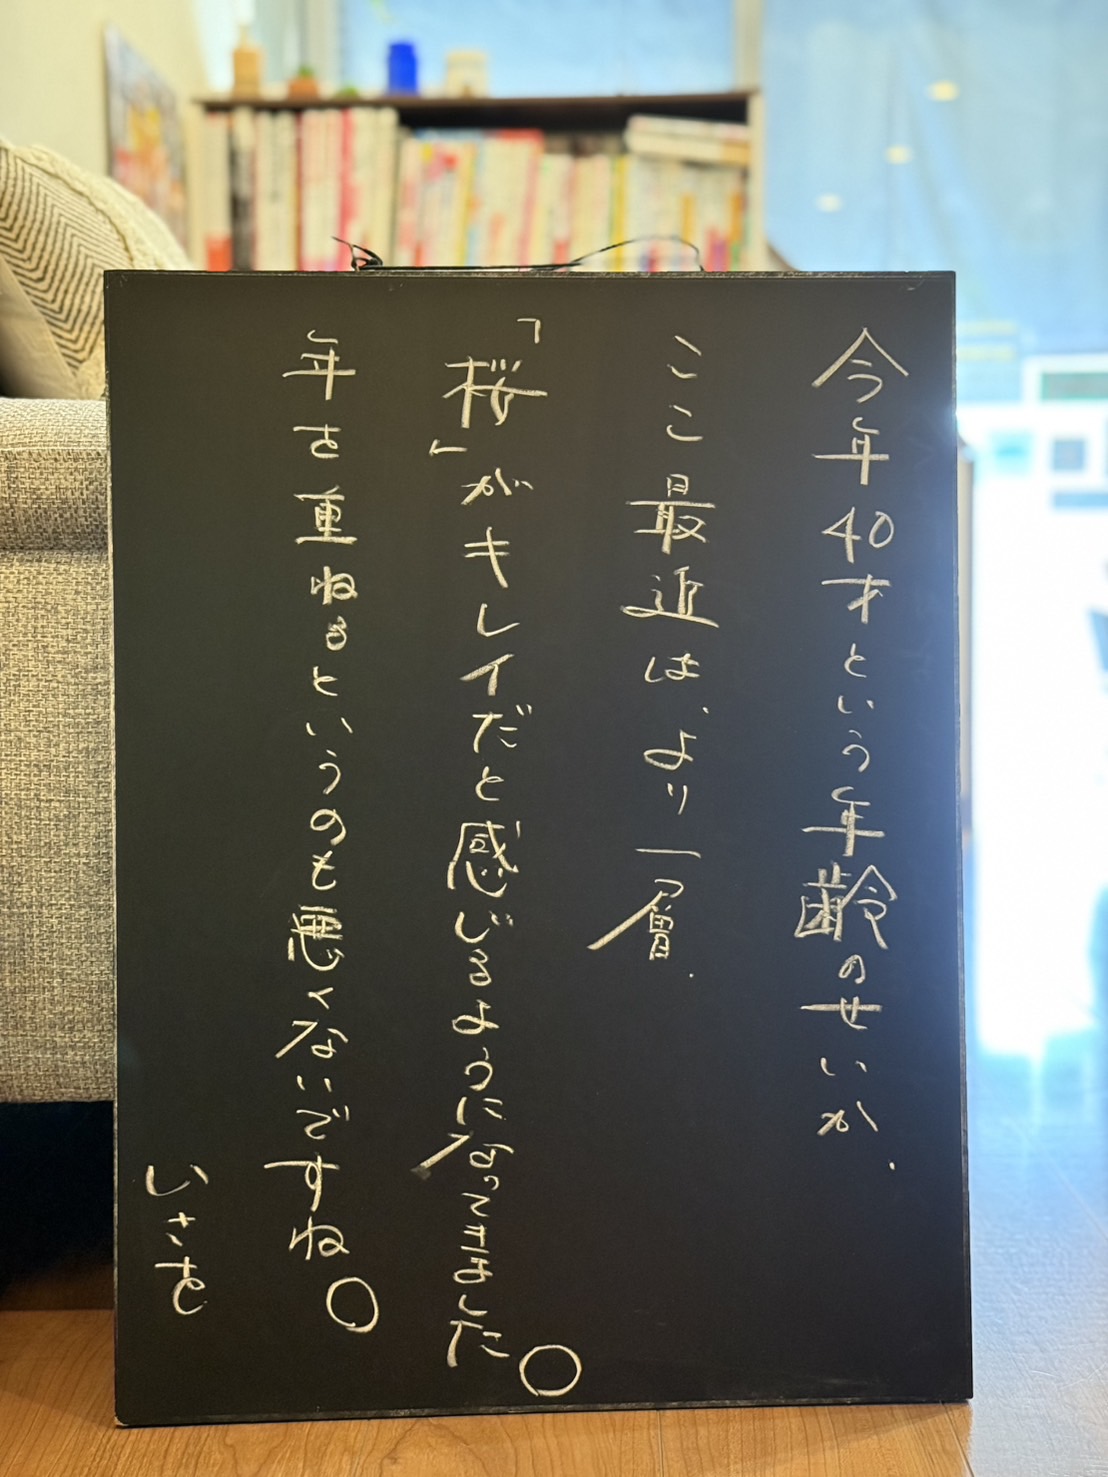 今年40才という年齢のせいか、
ここ最近は、より一層、
「桜」がキレイだと感じるようになってきました。
年を重ねるというのも悪くないですね。
いさを